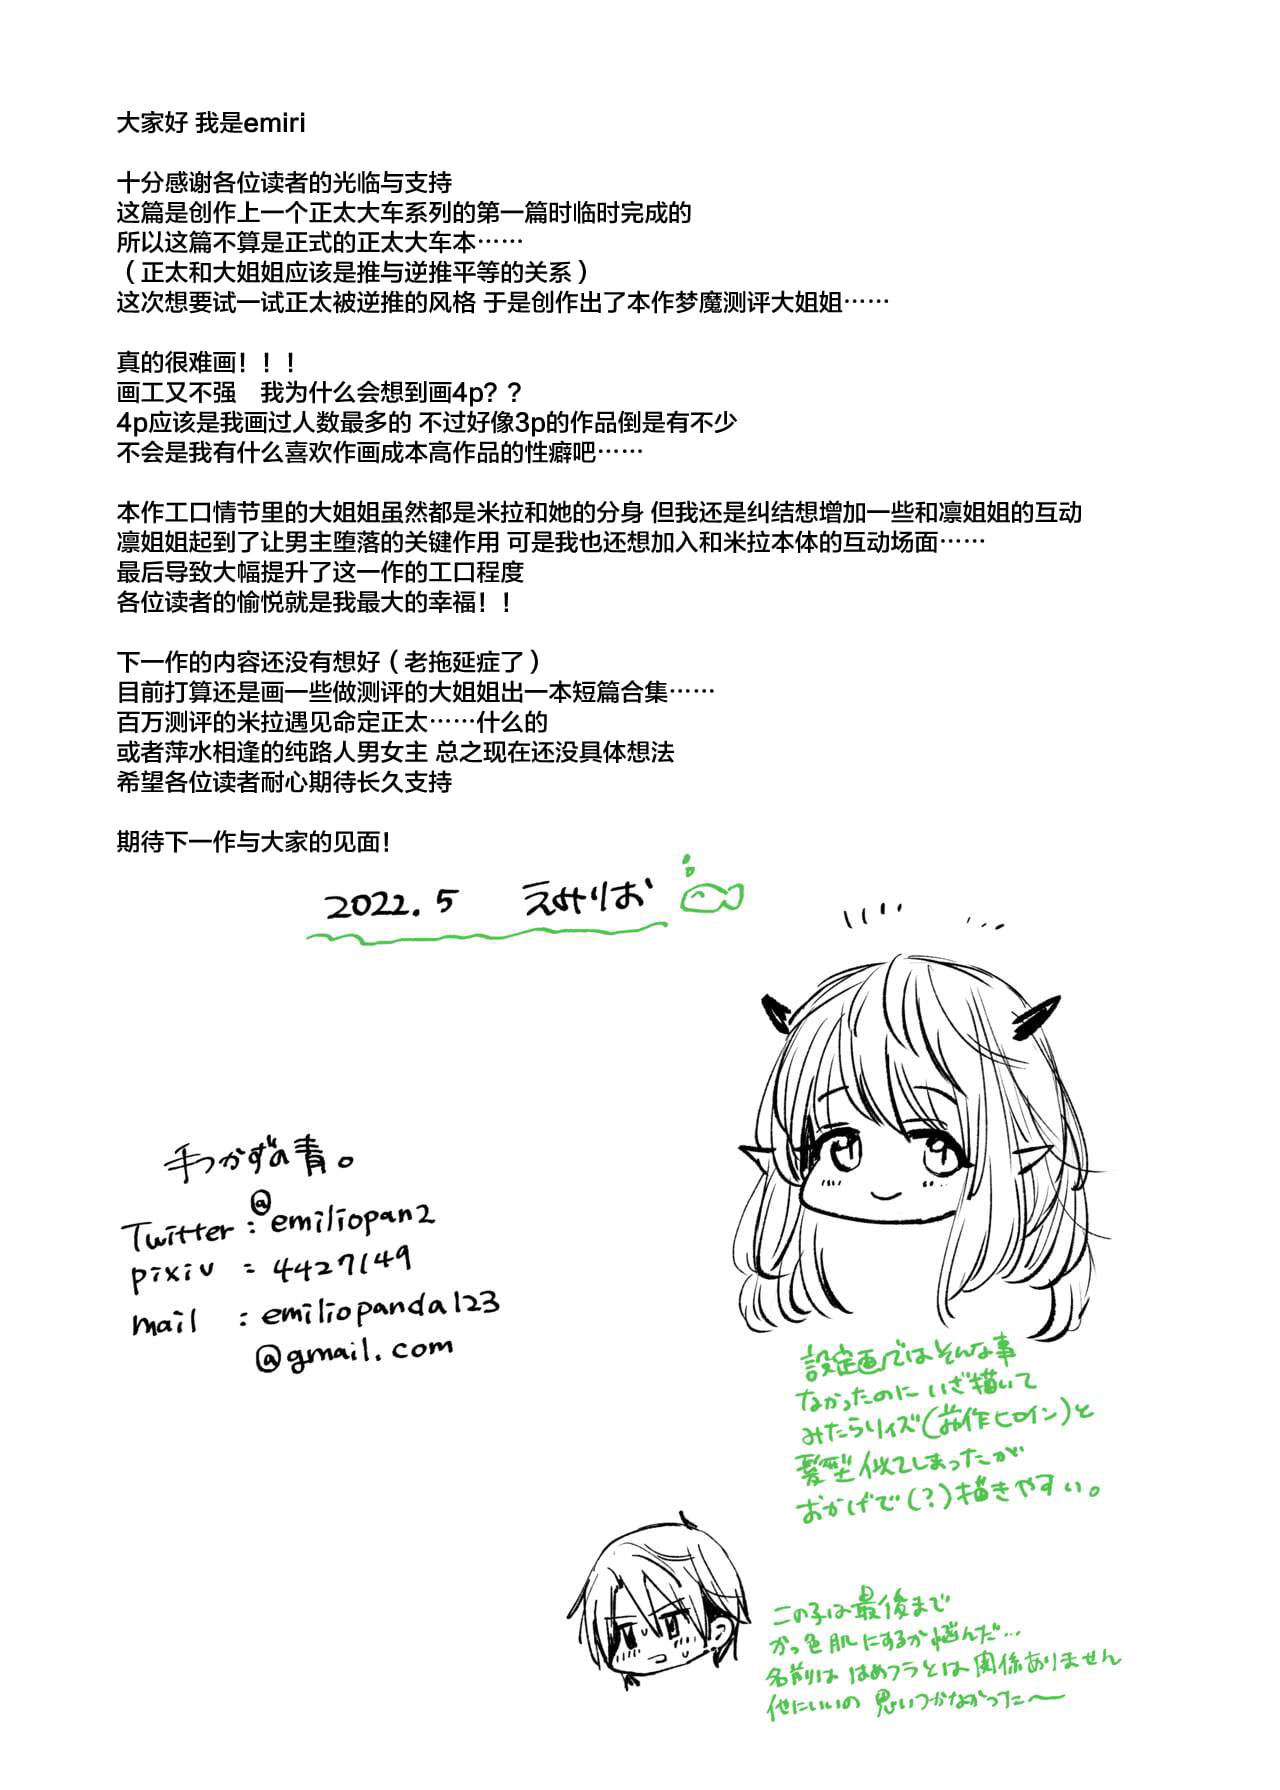 大家好 我是emiri
十分感谢各位读者的光临与支持
这篇是创作上一个正太大车系列的第一篇时临时完成的
所以这篇不算是正式的正太大车本……
（正太和大姐姐应该是推与逆推平等的关系）
这次想要试一试正太被逆推的风格 于是创作出了本作梦魔测评大姐姐……
真的很难画！！！
画工又不强　我为什么会想到画4p？？
4p应该是我画过人数最多的 不过好像3p的作品倒是有不少
不会是我有什么喜欢作画成本高作品的性癖吧……
本作工口情节里的大姐姐虽然都是米拉和她的分身 但我还是纠结想增加一些和凛姐姐的互动
凛姐姐起到了让男主堕落的关键作用 可是我也还想加入和米拉本体的互动场面……
最后导致大幅提升了这一作的工口程度
各位读者的愉悦就是我最大的幸福！！
下一作的内容还没有想好（老拖延症了）
目前打算还是画一些做测评的大姐姐出一本短篇合集……
百万测评的米拉遇见命定正太……什么的
或者萍水相逢的纯路人男女主 总之现在还没具体想法
希望各位读者耐心期待长久支持
期待下一作与大家的见面！
2022.5 えみりお
手つかずの青。
Twitter：@emiliopan2
pixiv：4427149
mail：emiliopanda123
@gmail.com
設定画ではそんな事
なかったのにいざ描いて
みたらリズ(前作ヒロイン)と
髪型似てしまったが
おかげで(?)描きやすい。
この子は最後まで
かっ色肌にするか悩んだ…
名前ははめフラとは関係ありません
他にいいの思いつかなかった〜